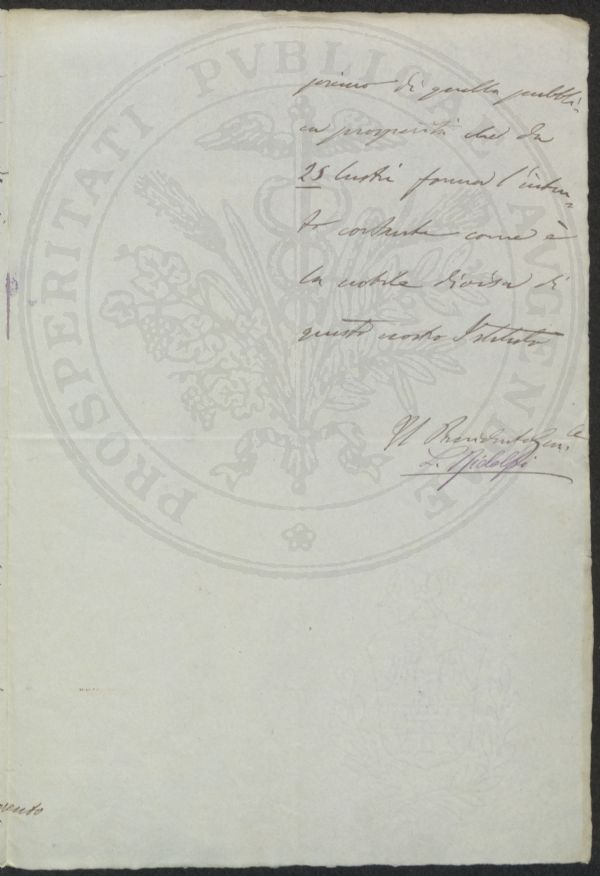 PROSPERITATI PVBLICAE AVGENDAE
primo di quella pubbli-
ca prosperità che da
25 lustri forma l'inten-
to costante come è
la nobile divisa di
questo nostro Istituto
Il Presidente Gen.e
L. Ridolfi